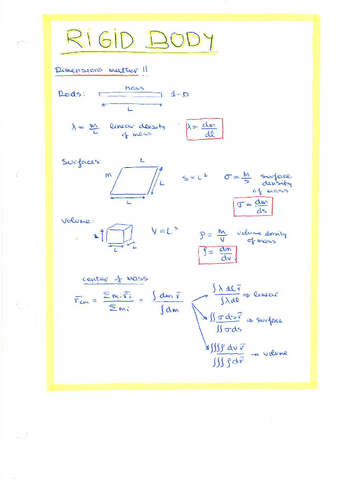 RIGID BODY
Dimensions matter !!
Rods: mass 1-D
L
λ = M/L linear density of mass λ = dm/dl
Surfaces: L
M L S = L² σ = M/S surface density of mass
σ = dm/ds
Volume:
L L L V = L³ ρ = M/V volume density of mass
ρ = dm/dv
center of mass
r̄cm = Σmi r̄i / Σmi = ∫dm r̄ / ∫dm
∫λ dl r̄ / ∫λ dl ⇒ linear
∬σ ds r̄ / ∬σ ds ⇒ surface
∭ρ dv r̄ / ∭ρ dv ⇒ volume